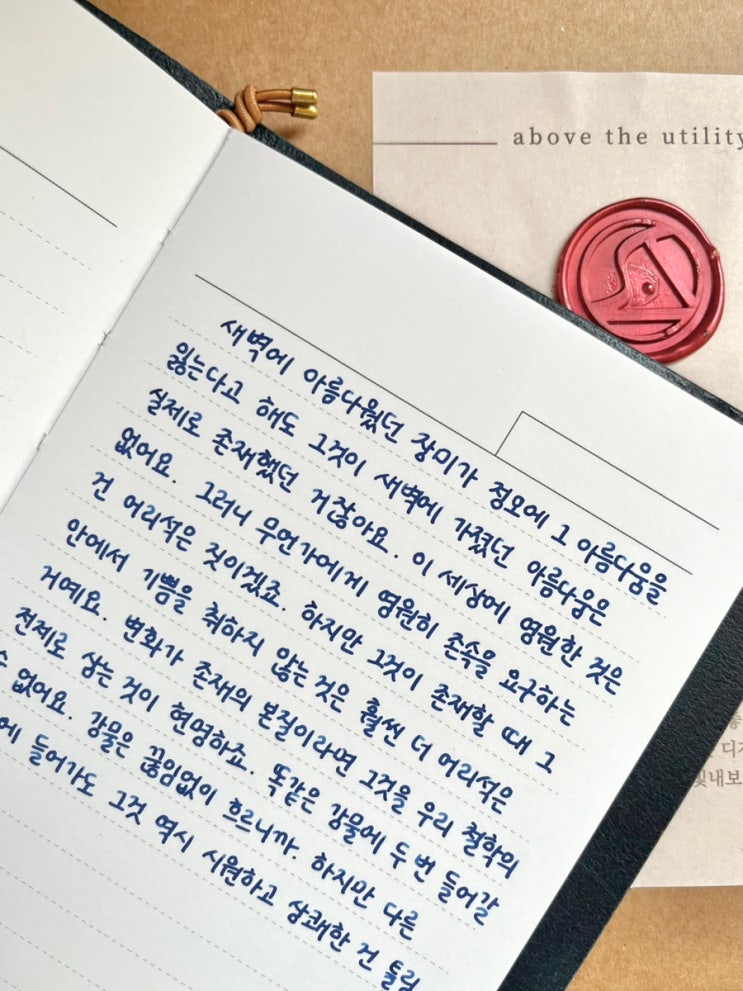 above the utility
새벽에 아름다웠던 장미가 정오에 그 아름다움을
잃는다고 해도 그것이 새벽에 가졌던 아름다움은
실제로 존재했던 거잖아요. 이 세상에 영원한 것은
없어요. 그러니 무언가에게 영원히 존속을 요구하는
건 어리석은 짓이겠죠. 하지만 그것이 존재할 때 그
안에서 기쁨을 취하지 않는 것은 훨씬 더 어리석은
거예요. 변화가 존재의 본질이라면 그것을 우리 철학의
전제로 삼는 것이 현명하죠. 똑같은 강물에 두 번 들어갈
수 없어요. 강물은 끊임없이 흐르니까. 하지만 다른
에 들어가도 그것 역시 시원하고 상쾌한 건 틀림
빛내보